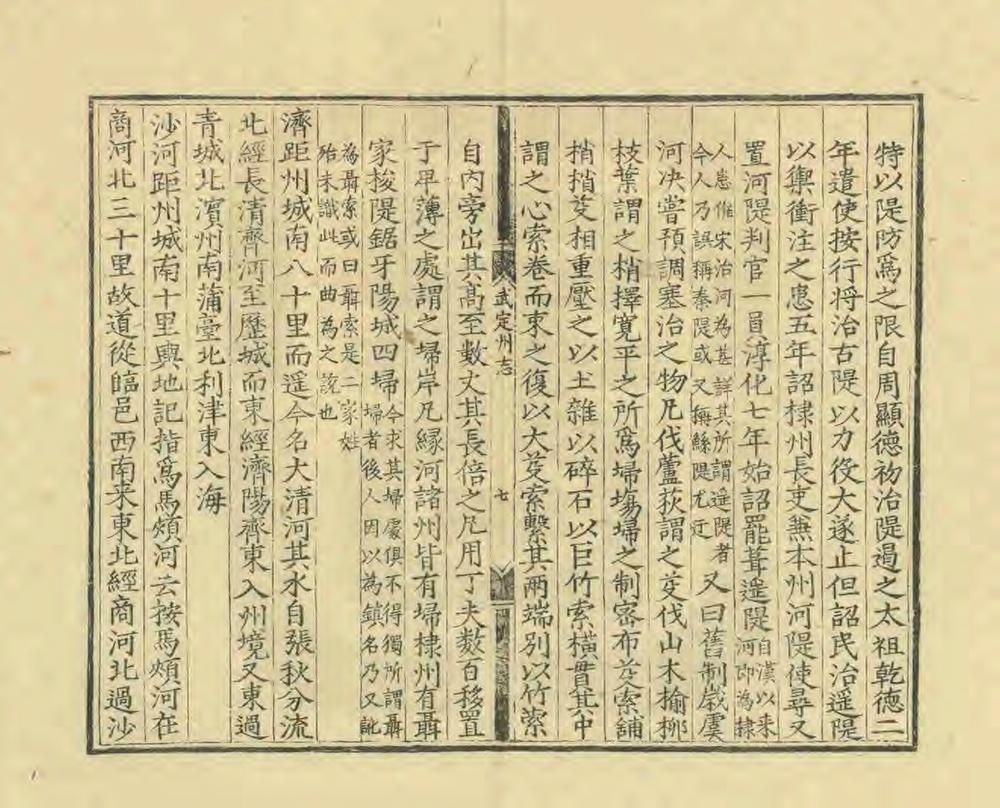 特以隄防爲之限自周顯德初治隄遏之太祖乾德二
年遣使按行将治古隄以力役大遂止但詔民治遥隄
以禦衝注之患五年詔棣州長吏兼本州河隄使尋又
置河隄判官一員淳化七年始詔罷葺遥隄自漢以来
河即為棣
人患惟宋治河為甚詳其所謂遥隄者
今人乃誤稱秦隄或又稱鯀隄尤迂
又曰舊制歲虞
河决嘗預調塞治之物凡伐蘆荻謂之芟伐山木榆栁
枝葉謂之梢擇寛平之所爲埽塲埽之制密布芟索鋪
梢梢芟相重壓之以土雜以碎石以巨竹索橫貫其中
謂之心索卷而束之復以大芟索繫其兩端别以竹索
武定州志
七
自内旁出其髙至數丈其長倍之凡用丁夫数百移置
于卑薄之處謂之埽岸凡緣河諸州皆有埽棣州有聶
家梭隄鋸牙陽城四埽今求其埽處俱不得獨所謂聶
埽者後人因以為鎮名乃又訛
為聶索或曰聶索是二家姓
殆未識此而曲為之說也
濟距州城南八十里而遥今名大清河其水自張秋分流
北經長清齊河至歷城而東經濟陽齊東入州境又東過
青城北濱州南蒲臺北利津東入海
沙河距州城南十里輿地記指爲馬頰河云按馬頰河在
商河北三十里故道從臨邑西南来東北經商河北過沙